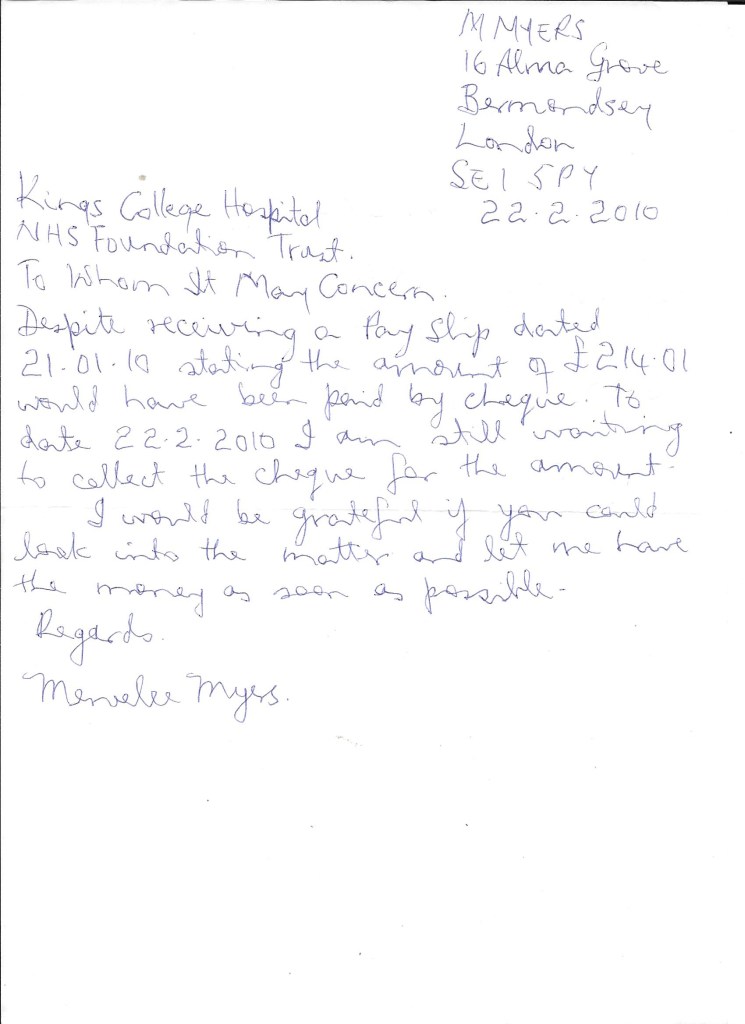 M MYERS
16 Alma Grove
Bermondsey
London
SE1 5PY
22.2.2010
Kings College Hospital
NHS Foundation Trust.
To Whom It May Concern.
Despite receiving a Pay Slip dated
21.01.10 stating the amount of £214.01
would have been paid by cheque. To
date 22.2.2010 I am still waiting
to collect the cheque for the amount.
I would be grateful if you could
look into the matter and let me have
the money as soon as possible.
Regards.
Mervelee Myers.